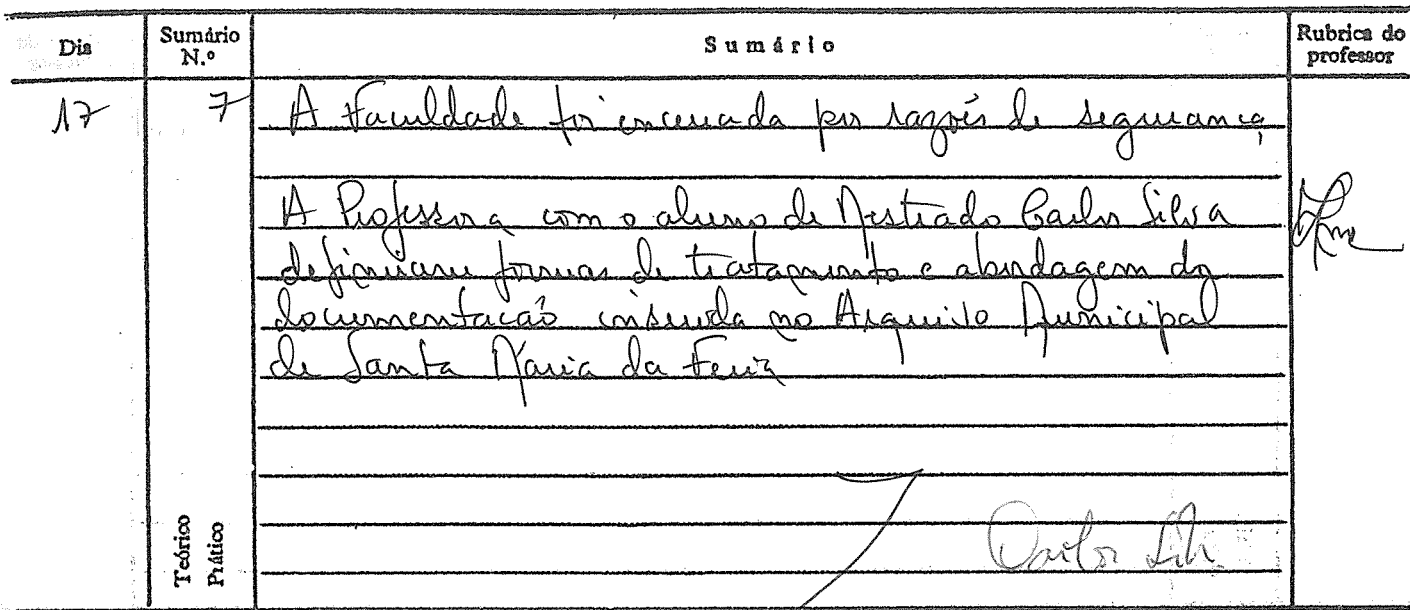 Dia
Sumário N.º
Sumário
Rubrica do professor
17
7
A Faculdade foi encerrada por razões de segurança
A Professora com o aluno de Mestrado Carlos Silva
definiram formas de tratamento e abordagem da
documentação inserida no Arquivo Municipal
de Santa Maria da Feira
Teórico
Prático
Carlos Silva